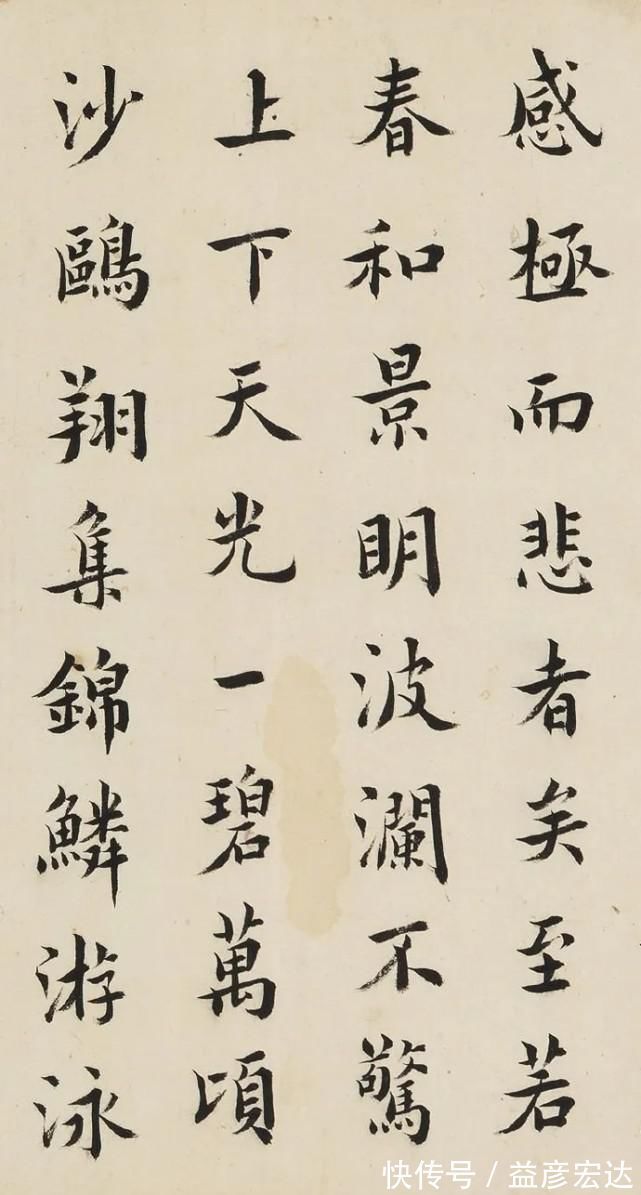 感極而悲者矣至若
春和景明波瀾不驚
上下天光一碧萬頃
沙鷗翔集錦鱗游泳
快传号／益彦宏达